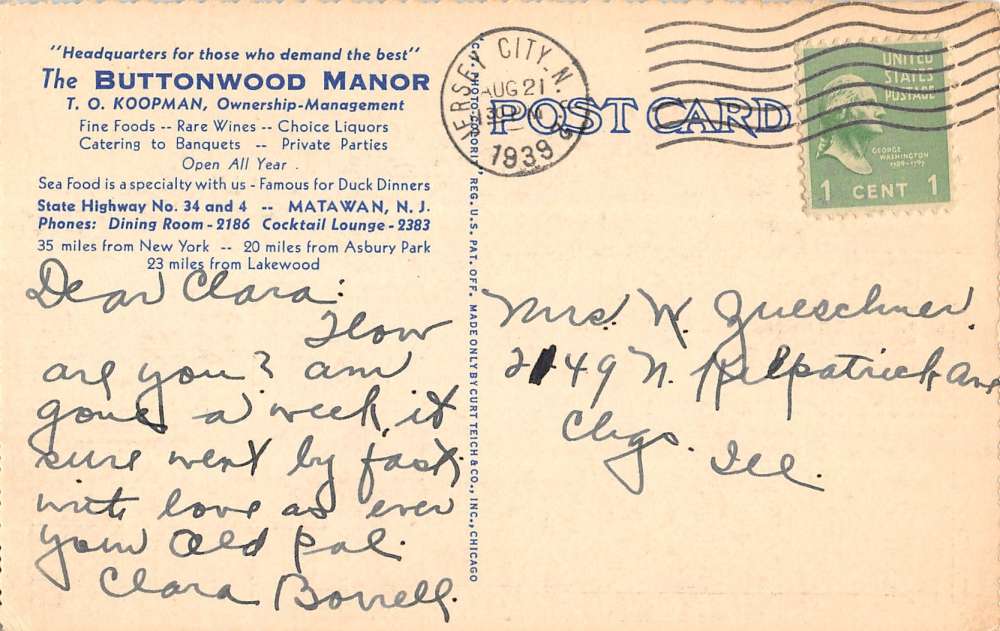 "Headquarters for those who demand the best"
The BUTTONWOOD MANOR
T. O. KOOPMAN, Ownership-Management
Fine Foods -- Rare Wines -- Choice Liquors
Catering to Banquets -- Private Parties
Open All Year .
Sea Food is a specialty with us - Famous for Duck Dinners
State Highway No. 34 and 4 -- MATAWAN, N. J.
Phones: Dining Room - 2186 Cocktail Lounge - 2383
35 miles from New York -- 20 miles from Asbury Park
23 miles from Lakewood
Dear Clara:
How
are you? am
gone a week, it
sure went by fast,
with love as ever
your old pal.
Clara Borrell.
"C.T. PHOTO-COLORIT" REG. U.S. PAT. OFF. MADE ONLY BY CURT TEICH & CO., INC., CHICAGO
JERSEY CITY, N.J.
AUG 21
1939
POST CARD
UNITED
STATES
POSTAGE
GEORGE
WASHINGTON
1789-1797
1 CENT 1
Mrs. W. Zueschner.
2149 N. Kilpatrick Ave
Chgo. Ill.